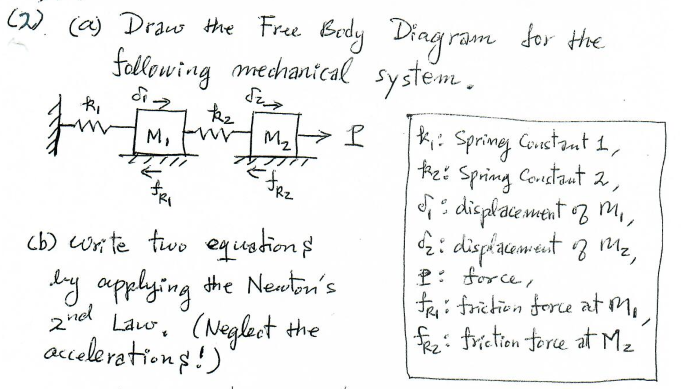 (2) (a) Draw the Free Body Diagram for the
following mechanical system.
k₁ δ₁ → k₂ δ₂ →
M₁ M₂ → P
f_R1 f_R2
k₁: Spring Constant 1,
k₂: Spring Constant 2,
δ₁: displacement of M₁,
δ₂: displacement of M₂,
P: force,
f_R1: friction force at M₁,
f_R2: friction force at M₂
(b) Write two equations
by applying the Newton's
2nd Law. (Neglect the
accelerations!)